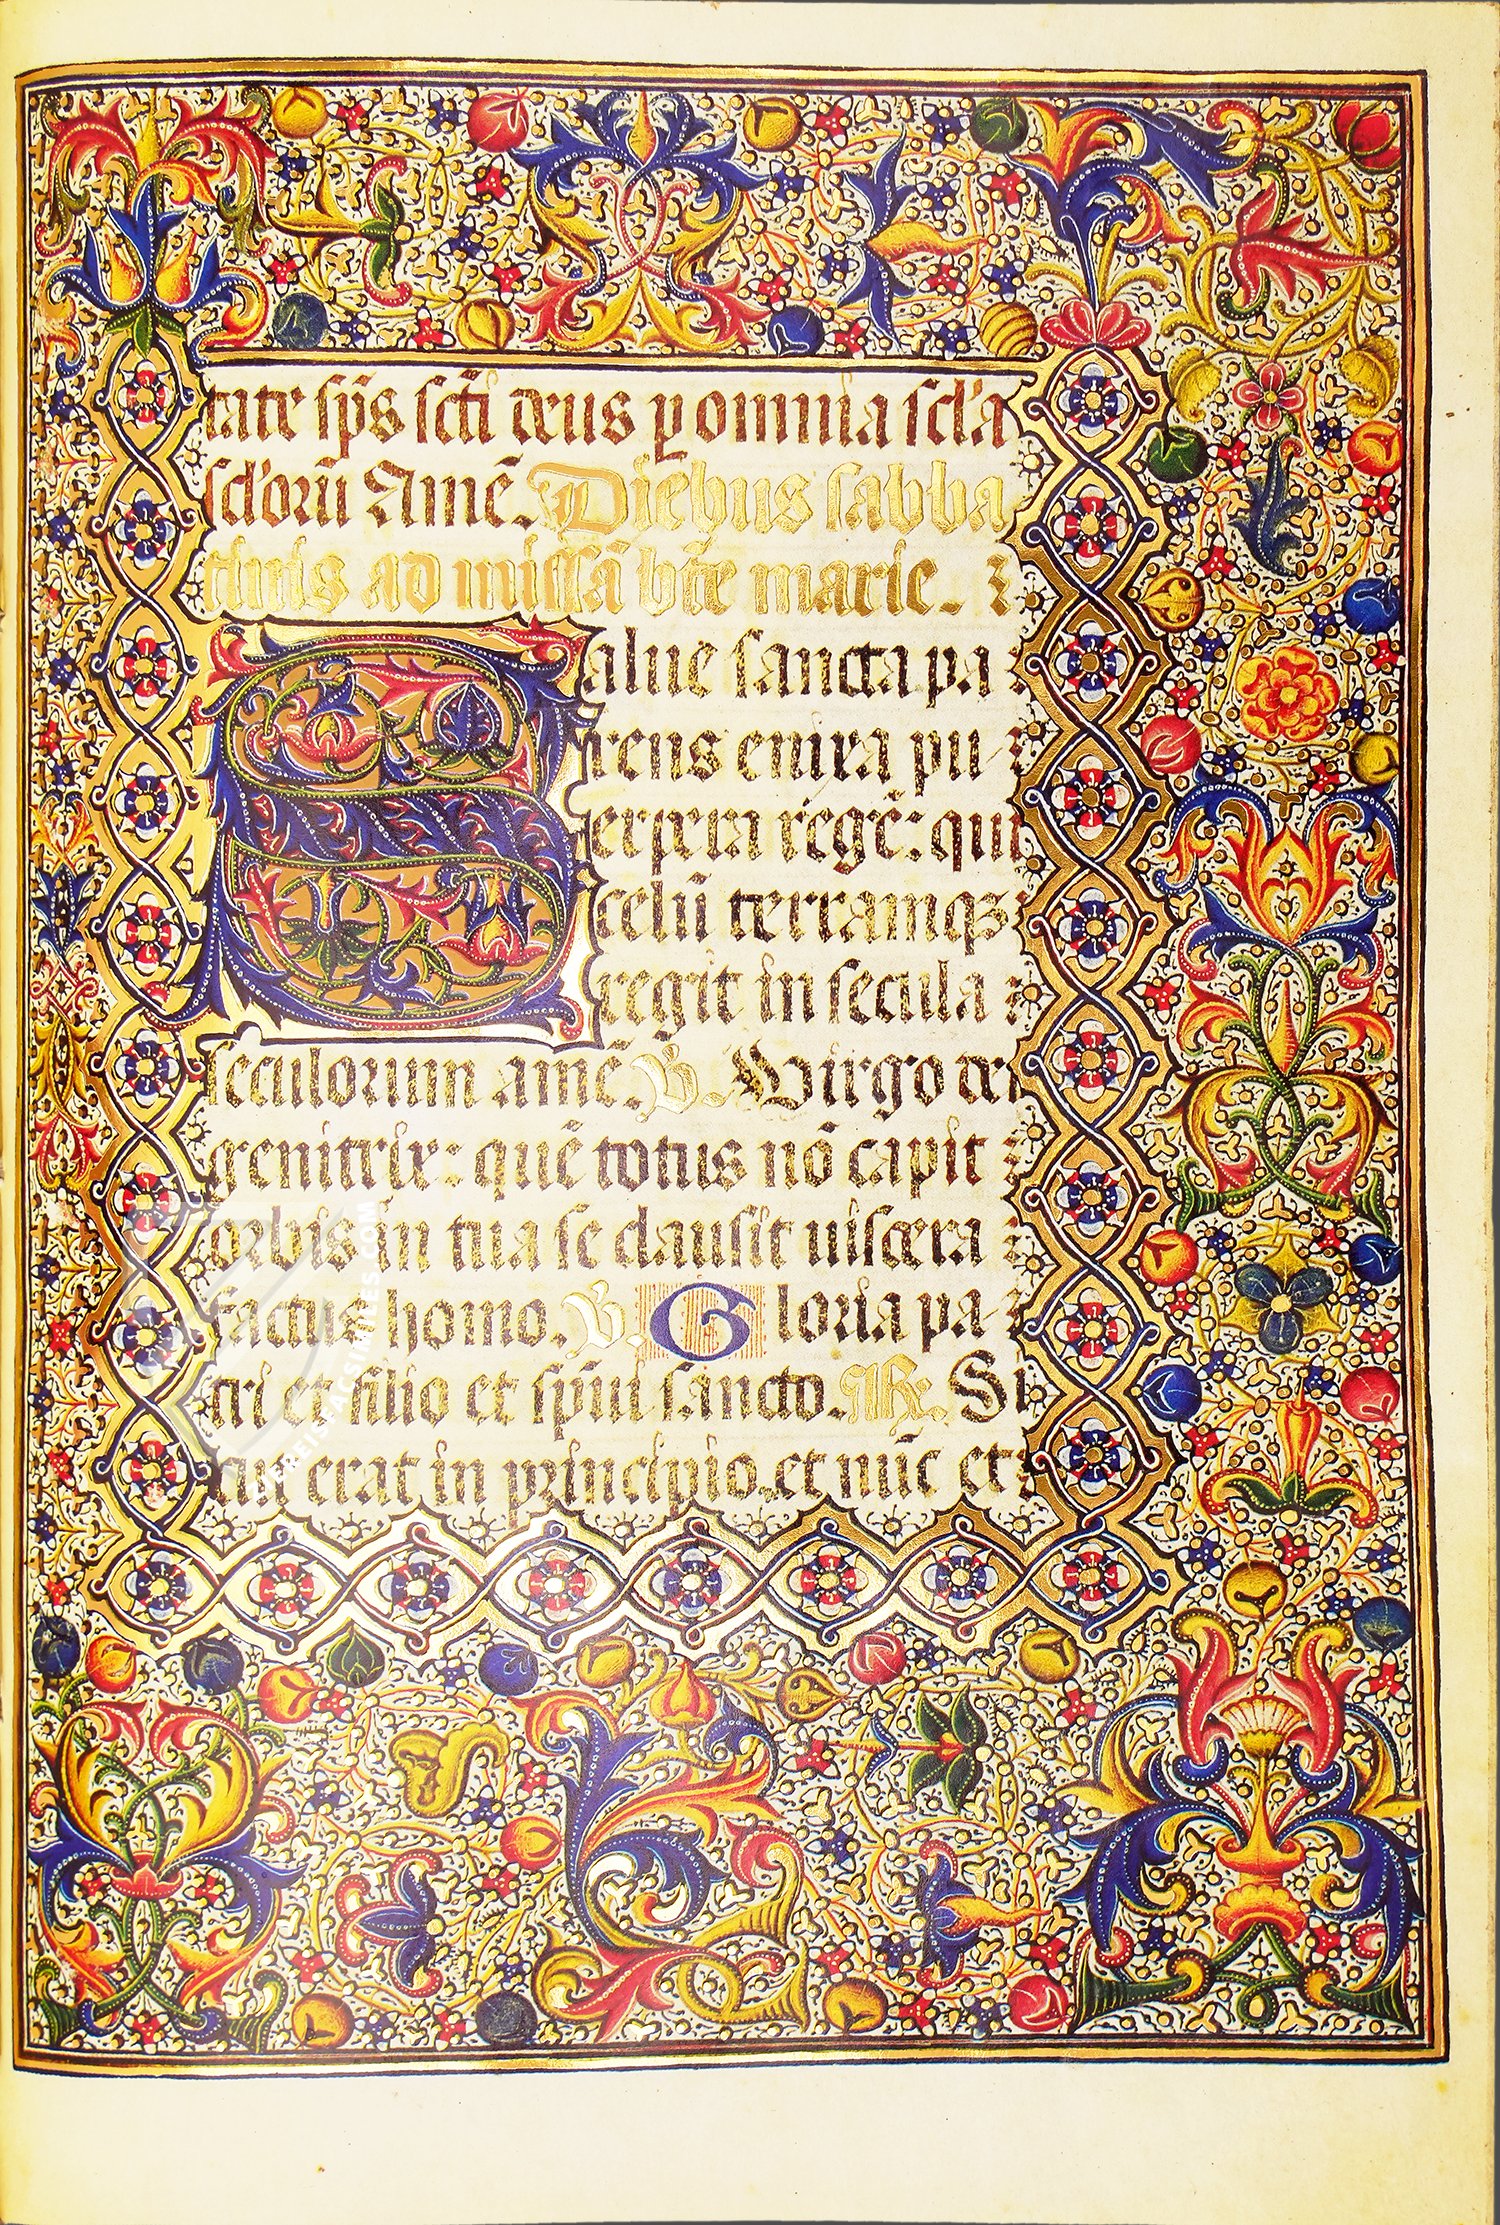 tate sp̄s sc̄ti deus p omnia sc̄l'a
sc̄l'orū Amē. Diebus sabba
thinis ad missā btē marie.
Salue sancta pa
rens enixa pu
erpera regē: qui
celū terramqꝫ
regit in secula
seculorum amē. V. Virgo dei
genitrix: quē totus nō capit
orbis in tua se clausit uiscera
factus homo. V. Gloria pa
tri et filio et sp̄ui sancto. R. Si
cut erat in principio. et nūc et
ZIEREISFACSIMILES.COM